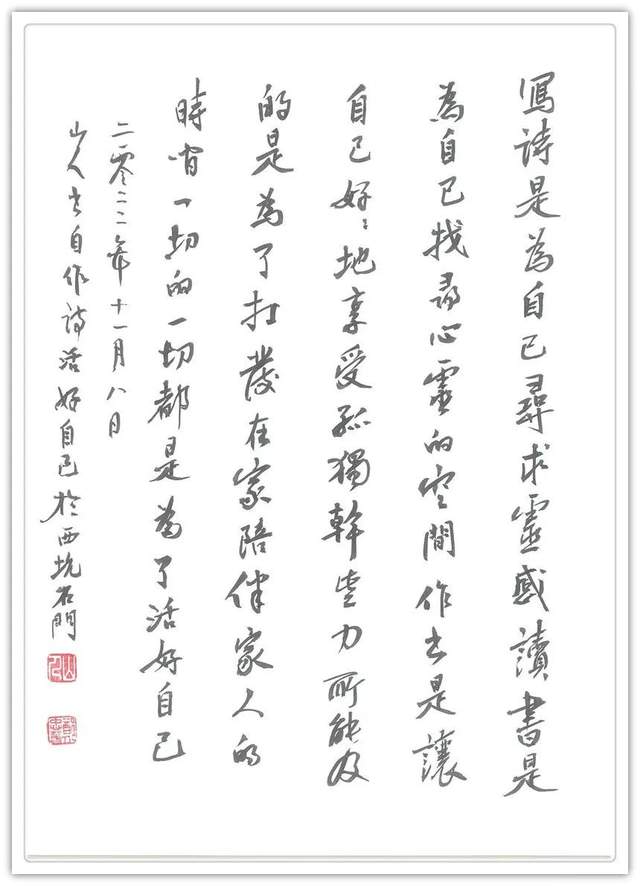 寫詩是為自己尋求靈感讀書是
為自己找尋心靈的空間作書是讓
自己好〻地享受孤獨幹些力所能及
的是為了打發在家陪伴家人的
時間一切的一切都是為了活好自己
二零二二年十一月八日
山人書自作詩活好自己於西坑石門
山人